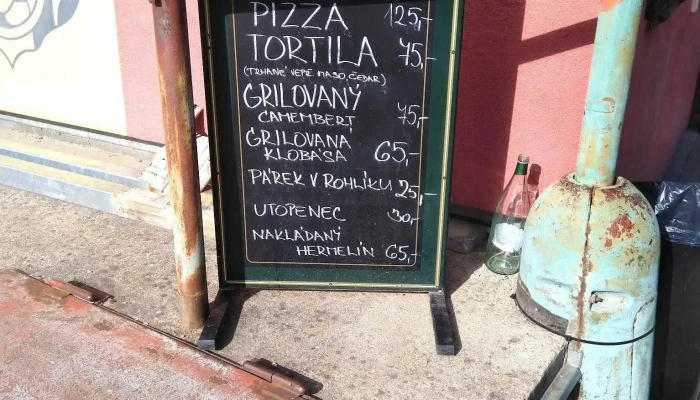 PIZZA 125,-
TORTILA 75,-
(TRHANÉ VEPŘ. MASO, ČEDAR)
GRILOVANÝ
CAMEMBERT 75,-
GRILOVANÁ
KLOBÁSA 65,-
PÁREK V ROHLÍKU 25,-
UTOPENEC 30,-
NAKLÁDANÝ
HERMELÍN 65,-